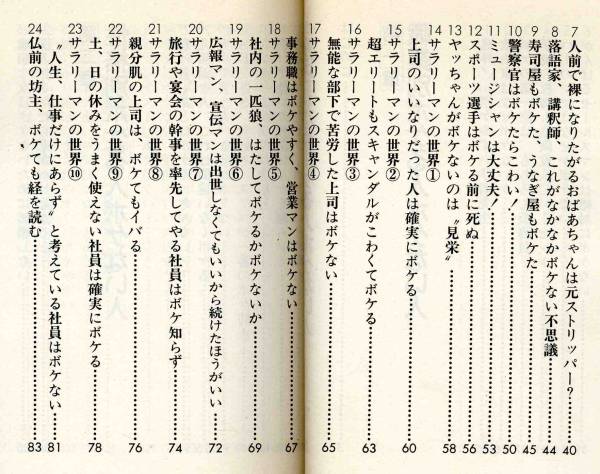 7 人前で裸になりたがるおばあちゃんは元ストリッパー?……40
8 落語家、講釈師、これがなかなかボケない不思議……44
9 寿司屋もボケた、うなぎ屋もボケた……45
10 警察官はボケたらこわい!……50
11 ミュージシャンは大丈夫!……53
12 スポーツ選手はボケる前に死ぬ……56
13 ヤッちゃんがボケないのは〝見栄〟……58
14 サラリーマンの世界①
上司のいいなりだった人は確実にボケる……60
15 サラリーマンの世界②
超エリートもスキャンダルがこわくてボケる……63
16 サラリーマンの世界③
無能な部下で苦労した上司はボケない……65
17 サラリーマンの世界④
事務職はボケやすく、営業マンはボケない……67
18 サラリーマンの世界⑤
社内の一匹狼、はたしてボケるかボケないか……69
19 サラリーマンの世界⑥
広報マン、宣伝マンは出世しなくてもいいから続けたほうがいい……72
20 サラリーマンの世界⑦
旅行や宴会の幹事を率先してやる社員はボケ知らず……74
21 サラリーマンの世界⑧
親分肌の上司は、ボケてもイバる……76
22 サラリーマンの世界⑨
土、日の休みをうまく使えない社員は確実にボケる……78
23 サラリーマンの世界⑩
〝人生、仕事だけにあらず〟と考えている社員はボケない……81
24 仏前の坊主、ボケても経を読む……83